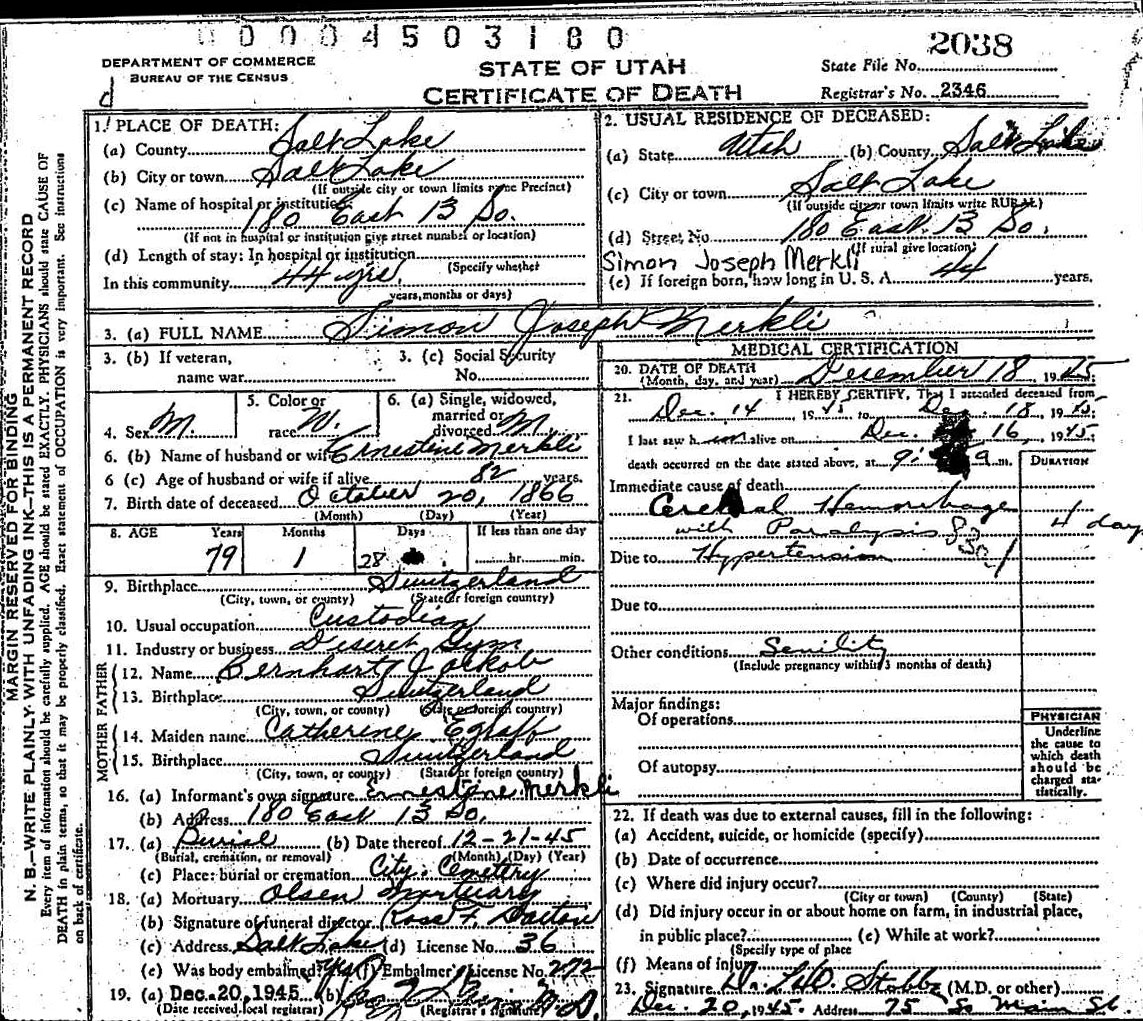 0004503180
2038
DEPARTMENT OF COMMERCE
BUREAU OF THE CENSUS
d
STATE OF UTAH
CERTIFICATE OF DEATH
State File No.
Registrar's No. 2346
1. PLACE OF DEATH:
(a) County Salt Lake
(b) City or town Salt Lake
(If outside city or town limits name Precinct)
(c) Name of hospital or institution:
180 East 13 So.
(If not in hospital or institution give street number or location)
(d) Length of stay: In hospital or institution
(Specify whether
In this community 44 yrs.
years, months or days)
2. USUAL RESIDENCE OF DECEASED:
(a) State Utah (b) County Salt Lake
(c) City or town Salt Lake
(If outside city or town limits write RURAL)
(d) Street No. 180 East 13 So.
(If rural give location)
Simon Joseph Merkli
(e) If foreign born, how long in U. S. A. 44 years.
3. (a) FULL NAME Simon Joseph Merkli
3. (b) If veteran,
name war
3. (c) Social Security
No.
4. Sex M.
5. Color or
race W.
6. (a) Single, widowed,
married or
divorced M.
6. (b) Name of husband or wife Ernestine Merkli
6 (c) Age of husband or wife if alive 82 years.
7. Birth date of deceased October 20, 1866
(Month) (Day) (Year)
8. AGE Years Months Days If less than one day
79 1 28 hr. min.
9. Birthplace Switzerland
(City, town, or county) (State or foreign country)
10. Usual occupation Custodian
11. Industry or business Deseret Gym
FATHER
12. Name Bernhart Jackob
13. Birthplace Switzerland
(City, town, or county) (State or foreign country)
MOTHER
14. Maiden name Catherine
15. Birthplace Switzerland
(City, town, or county) (State or foreign country)
16. (a) Informant's own signature Ernestine Merkli
(b) Address 180 East 13 So.
17. (a) Burial (b) Date thereof 12-21-45
(Burial, cremation, or removal) (Month) (Day) (Year)
(c) Place: burial or cremation City Cemetery
18. (a) Mortuary Olsen Mortuary
(b) Signature of funeral director Ross F. Dalton
(c) Address Salt Lake (d) License No. 36
(e) Was body embalmed? Yes (f) Embalmer's License No. 272
19. (a) Dec. 20, 1945 (b)
(Date received local registrar) (Registrar's signature)
MEDICAL CERTIFICATION
20. DATE OF DEATH
(Month, day, and year) December 18, 1945
21. I HEREBY CERTIFY, That I attended deceased from
Dec. 14 1945 to Dec. 18, 1945
I last saw h im alive on Dec. 16, 1945
death occurred on the date stated above, at 9: a m.
DURATION
Immediate cause of death
Cerebral Hemorrhage
with Paralysis 4 day
Due to Hypertension
Due to
Other conditions Senility
(Include pregnancy within 3 months of death)
Major findings:
Of operations
Of autopsy
PHYSICIAN
Underline
the cause to
which death
should be
charged sta-
tistically.
22. If death was due to external causes, fill in the following:
(a) Accident, suicide, or homicide (specify)
(b) Date of occurrence
(c) Where did injury occur?
(City or town) (County) (State)
(d) Did injury occur in or about home on farm, in industrial place,
in public place? (e) While at work?
(Specify type of place
(f) Means of injury
23. Signature (M.D. or other)
Dec. 20, 1945. Address 75 So Main St.
MARGIN RESERVED FOR BINDING
N. B.—WRITE PLAINLY WITH UNFADING INK—THIS IS A PERMANENT RECORD
Every item of information should be carefully supplied. AGE should be stated EXACTLY. PHYSICIANS should state CAUSE OF
DEATH in plain terms, so that it may be properly classified. Exact statement of OCCUPATION is very important. See instructions
on back of certificate.